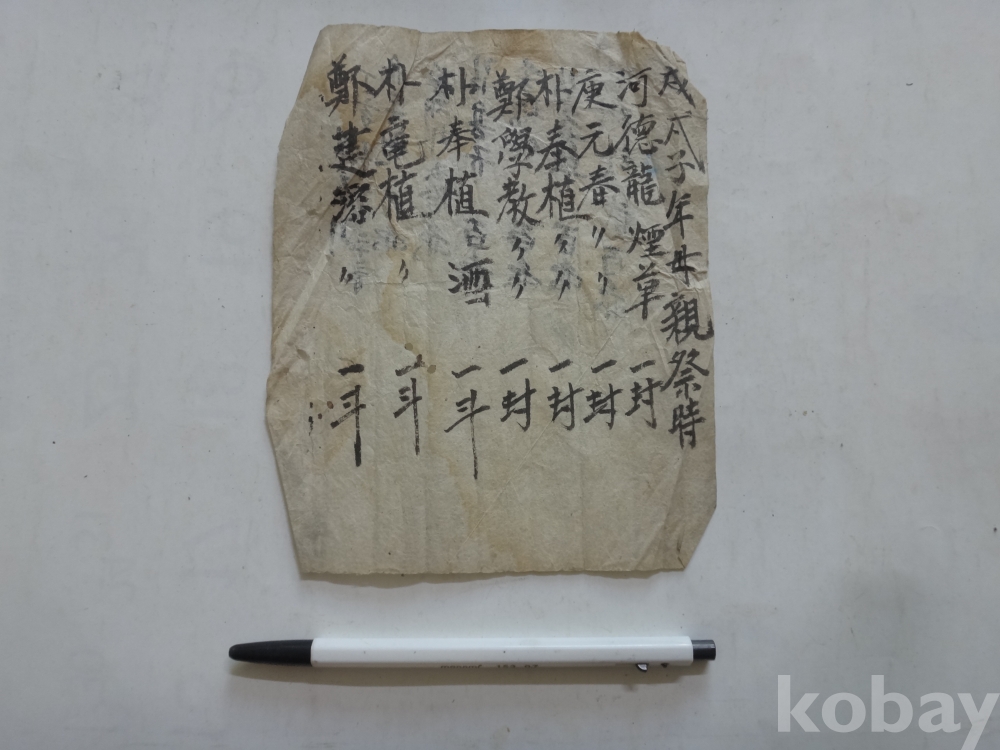 戊子年母親祭時
河德龍 煙草 一封
庚元春 〃 〃 一封
朴奉植 〃 〃 一封
鄭學教 〃 〃 一封
朴奉植 酒 一斗
朴 植 〃 一斗
鄭 〃 一斗
kobay